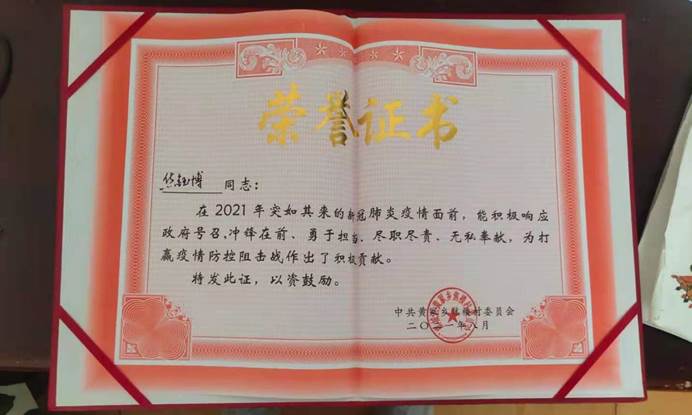 荣誉证书
同志：
在2021年突如其来的新冠肺炎疫情面前，能积极响应
政府号召、冲锋在前、勇于担当、尽职尽责、无私奉献，为打
赢疫情防控阻击战作出了积极贡献。
特发此证，以资鼓励。
中共黄冢乡 村委员会
二〇二一年八月